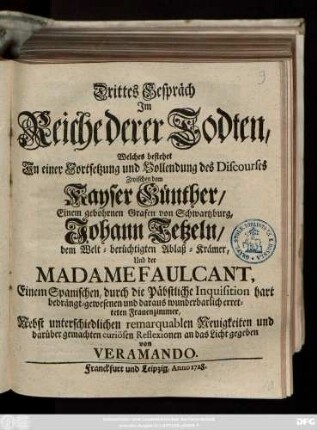 9
Drittes Gespräch
Im
Reiche derer Todten,
Welches bestehet
In einer Fortsetzung und Vollendung des Discourses
Zwischen dem
Kayser Günther/
Einem gebohrnen Grafen von Schwartzburg,
Johann Tetzeln/
dem Welt-berüchtigten Ablaß-Krämer,
Und der
MADAME FAULCANT,
Einem Spanischen, durch die Päbstliche Inquisition hart
bedrängt-gewesenen und daraus wunderbarlich erret-
teten Frauenzimmer,
Nebst unterschiedlichen remarquablen Neuigkeiten und
darüber gemachten curiösen Reflexionen an das Licht gegeben
von
VERAMANDO.
Franckfurt und Leipzig, Anno 1728.
DFG